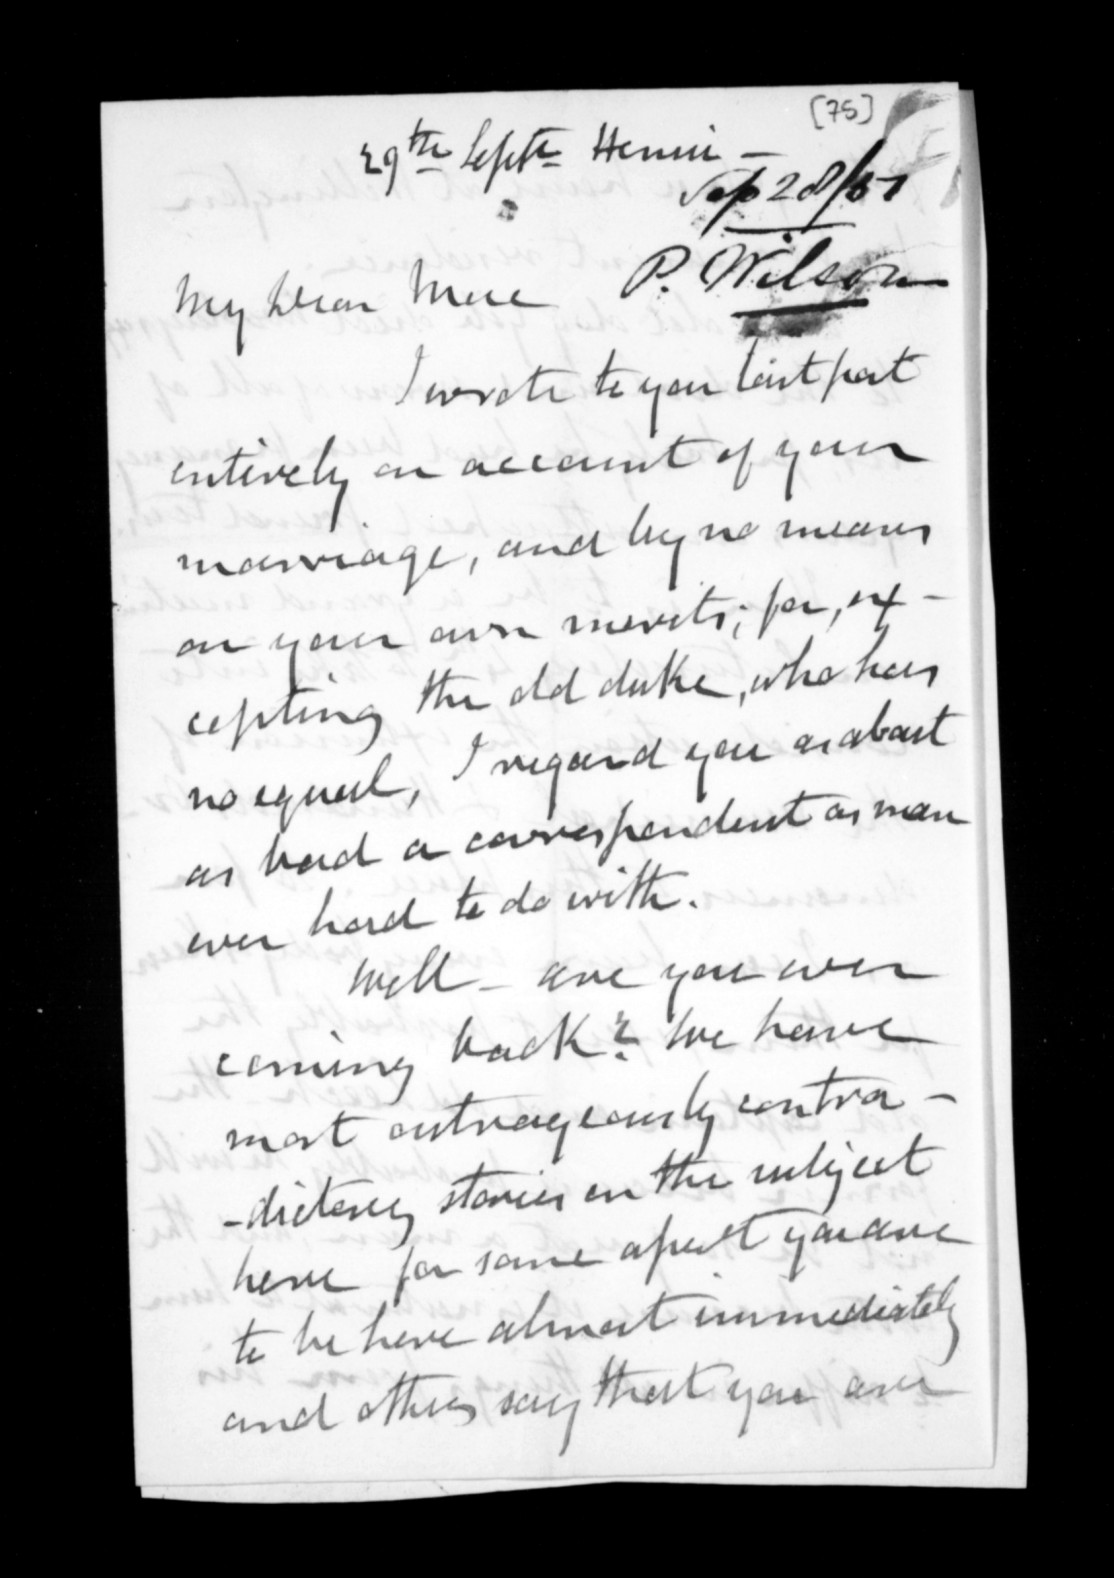 [75]
29th Septr Henui —
Sep 28/67
P. Wilson
My Dear Mere
I wrote to you last post
entirely on account of your
marriage, and by no means
on your own merits; for, ex-
cepting the old duke, who has
no equal, I regard you as about
as bad a correspondent as man
ever had to do with.
Well — are you ever
coming back? We have
most outrageously contra-
-dictory stories on the subject
here for some you are
to be here almost immediately
and others say that you are